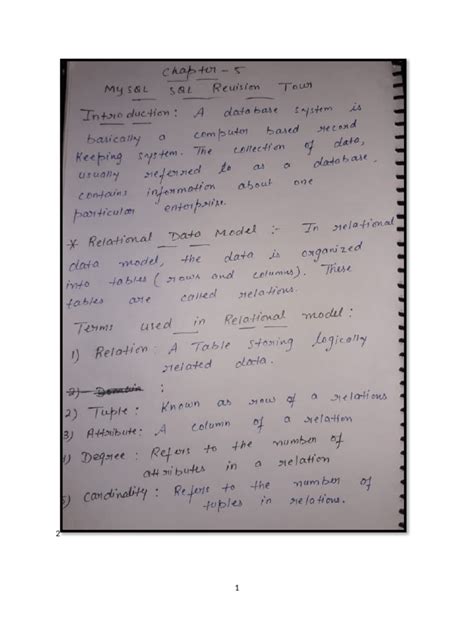 Chapter - 5
MySQL SQL Revision Tour
Introduction: A database system is
basically a computer based record
keeping system. The collection of data,
usually referred to as a database,
contains information about one
particular enterprise.
* Relational Data Model :- In relational
data model, the data is organized
into tables (rows and columns). These
tables are called relations.
Terms used in Relational model:
1) Relation: A Table storing logically
related data.
2) Domain :
2) Tuple: Known as row of a relations
3) Attribute: A column of a relation
4) Degree: Refers to the number of
attributes in a relation
5) Cardinality: Refers to the number of
tuples in relations.
2
1